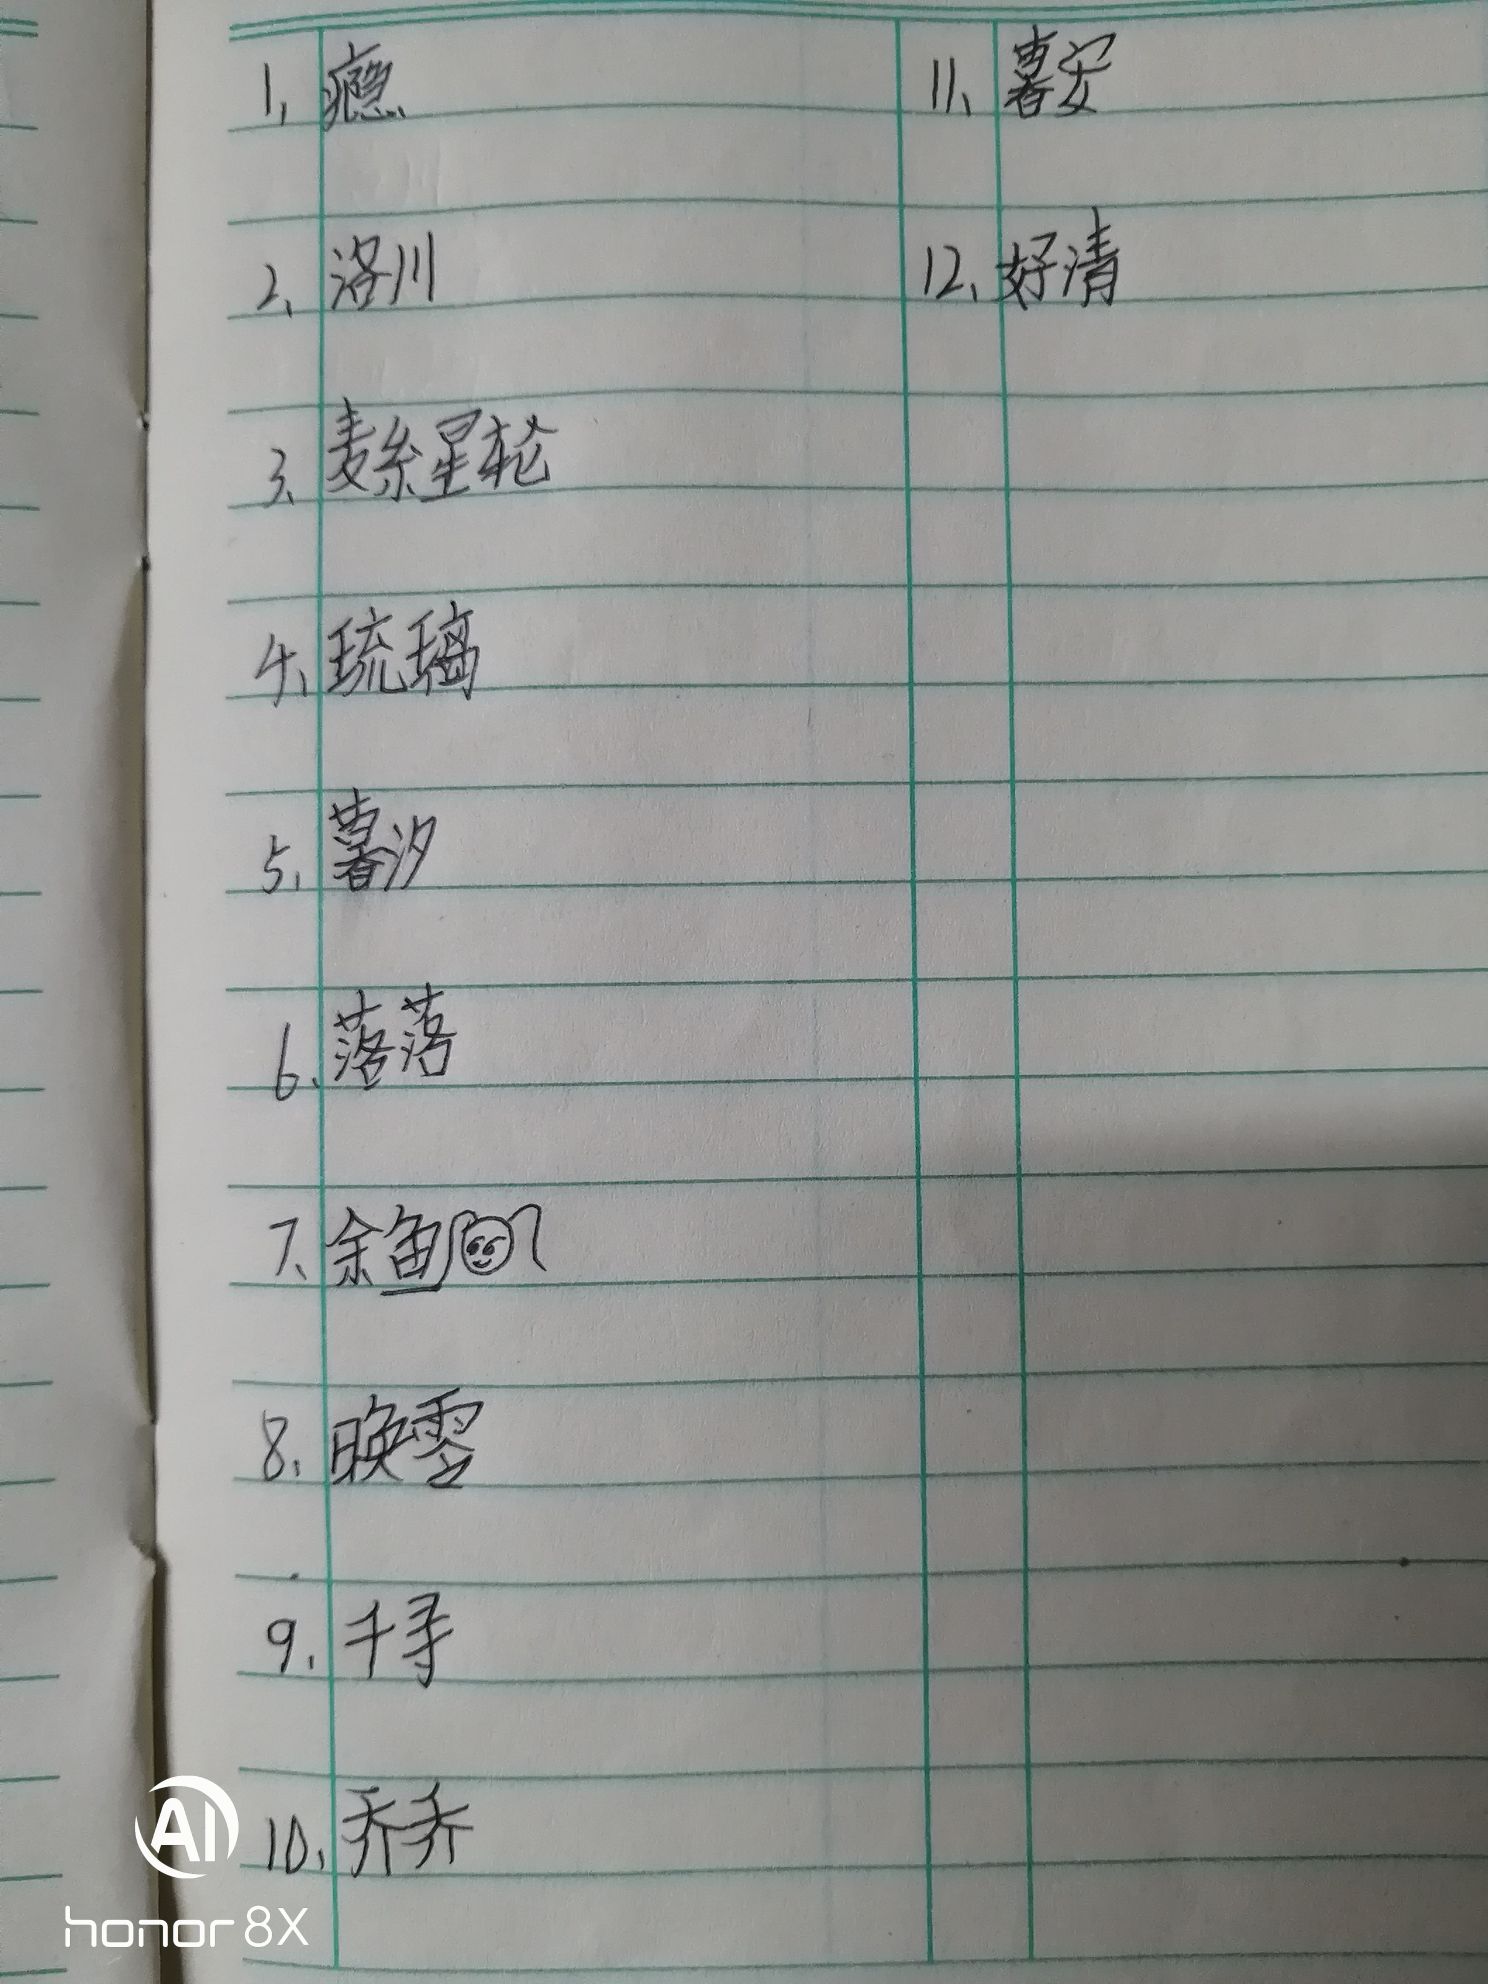 1、瘾
2、洛川
3、麦糸星轮
4、琉璃
5、暮汐
6、落落
7、余鱼
8、晚雯
9、千寻
10、乔乔
11、暮安
12、好清
AI
honor 8X